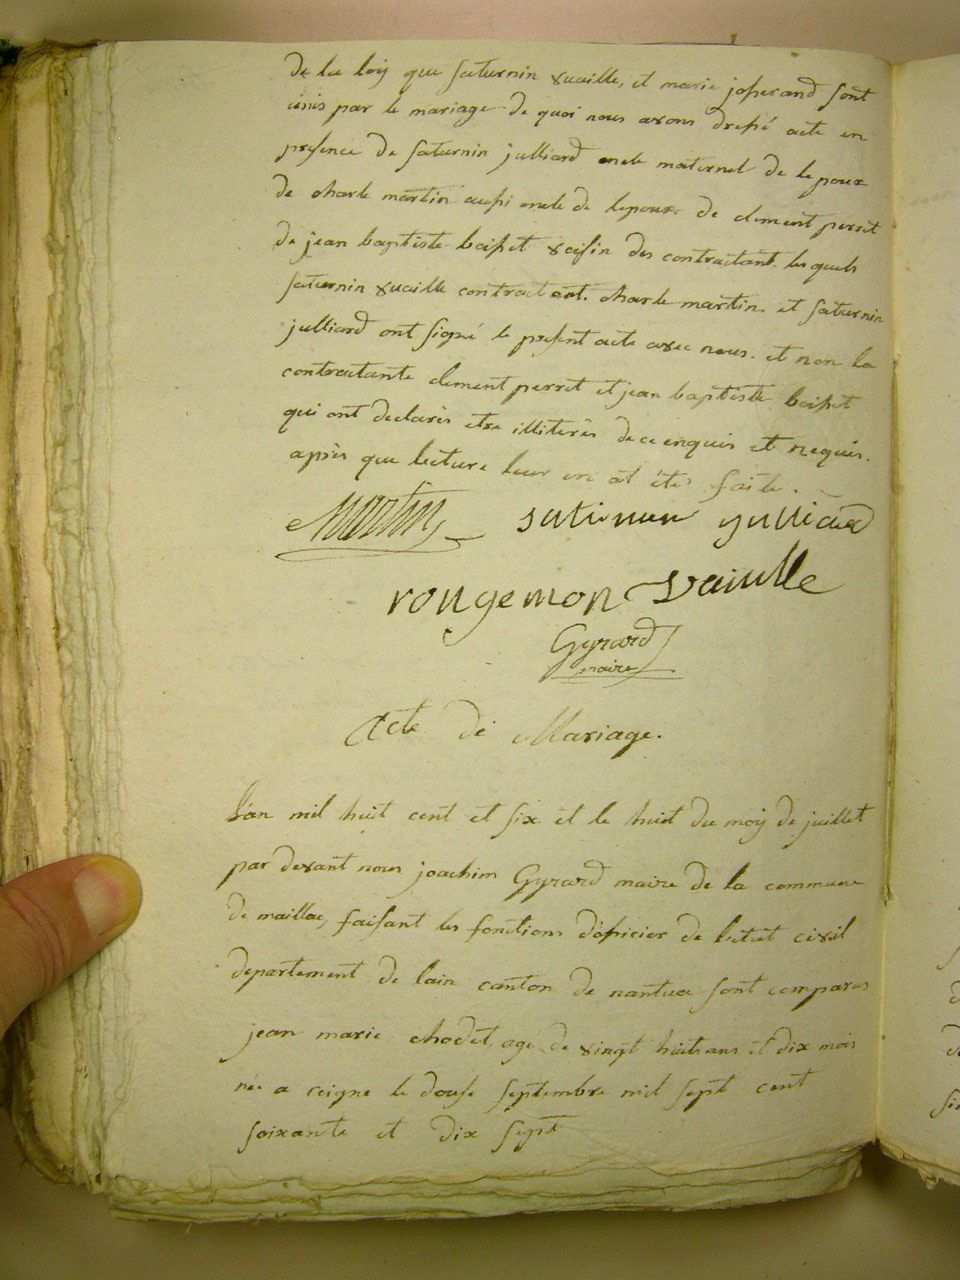 de la loiy que saturnin vuaille, et marie josperand sont
unis par le mariage de quoi nous avons dressé acte en
presence de saturnin julliard oncle maternel de lepoux
de charle martin aussi oncle de lepoux de clement perret
de jean baptiste boisset voisin des contractant. les quels
saturnin vuaille contractant. charle martin. et saturnin
julliard ont signé le present acte avec nous. et non la
contractante clement perret et jean baptiste boisset
qui ont declarés etre illiterés de ce enquis et requis.
après que lecture leur en at étés faite.
Martin saturnun julliard
rougemon vaiulle
Gyrard
maire
Acte de Mariage.
L'an mil huit cent et six et le huit du moy de juillet
par devant nous joachim Gyrard maire de la commune
de maillac, faisant les fonctions d'oficier de l'etat civil
departement de lain canton de nantua sont comparus
jean marie chodet, age de vingt huit ans et dix mois
née a ceigne le douse septembre mil sept cent
soixante et dix sept